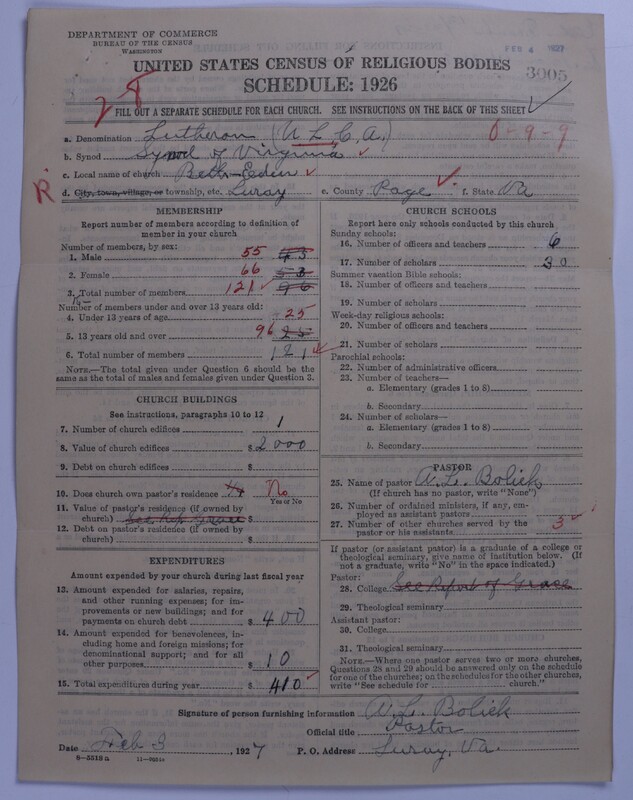 DEPARTMENT OF COMMERCE
BUREAU OF THE CENSUS
WASHINGTON
FEB 4 1927
3005
UNITED STATES CENSUS OF RELIGIOUS BODIES
SCHEDULE: 1926
28
FILL OUT A SEPARATE SCHEDULE FOR EACH CHURCH. SEE INSTRUCTIONS ON THE BACK OF THIS SHEET
a. Denomination Lutheran (U. L. C. A.)
0-9-9
b. Synod Synod of Virginia
c. Local name of church Beth-Eden
R
d. City, town, village, or township, etc. Luray e. County Page f. State Va
MEMBERSHIP
Report number of members according to definition of
member in your church
Number of members, by sex:
1. Male 55 43
2. Female 66 53
3. Total number of members 121 96
Number of members under and over 13 years old:
4. Under 13 years of age 25
5. 13 years old and over 96 25
6. Total number of members 121
NOTE.—The total given under Question 6 should be the
same as the total of males and females given under Question 3.
CHURCH BUILDINGS
See instructions, paragraphs 10 to 12
7. Number of church edifices 1
8. Value of church edifices $ 2000
9. Debt on church edifices $
10. Does church own pastor's residence No
Yes or No
11. Value of pastor's residence (if owned by
church) See Rep. Grace $
12. Debt on pastor's residence (if owned by
church) $
EXPENDITURES
Amount expended by your church during last fiscal year
13. Amount expended for salaries, repairs,
and other running expenses; for im-
provements or new buildings; and for
payments on church debt $ 400
14. Amount expended for benevolences, in-
cluding home and foreign missions; for
denominational support; and for all
other purposes $ 10
15. Total expenditures during year $ 410
CHURCH SCHOOLS
Report here only schools conducted by this church
Sunday schools:
16. Number of officers and teachers 6
17. Number of scholars 30
Summer vacation Bible schools:
18. Number of officers and teachers
19. Number of scholars
Week-day religious schools:
20. Number of officers and teachers
21. Number of scholars
Parochial schools:
22. Number of administrative officers
23. Number of teachers—
a. Elementary (grades 1 to 8)
b. Secondary
24. Number of scholars—
a. Elementary (grades 1 to 8)
b. Secondary
PASTOR
25. Name of pastor A. L. Bolick
(If church has no pastor, write "None")
26. Number of ordained ministers, if any, em-
ployed as assistant pastors
27. Number of other churches served by the
pastor or his assistants 3
If pastor (or assistant pastor) is a graduate of a college or
theological seminary, give name of institution below. (If
not a graduate, write "No" in the space indicated.)
Pastor:
28. College See Report of Grace
29. Theological seminary
Assistant pastor:
30. College
31. Theological seminary
NOTE.—Where one pastor serves two or more churches,
Questions 28 and 29 should be answered only on the schedule
for one of the churches; on the schedules for the other churches,
write "See schedule for church."
Signature of person furnishing information A. L. Bolick
Official title Pastor
Date Feb 3, 1927 P. O. Address Luray, Va.
8-5513a 11-9051a